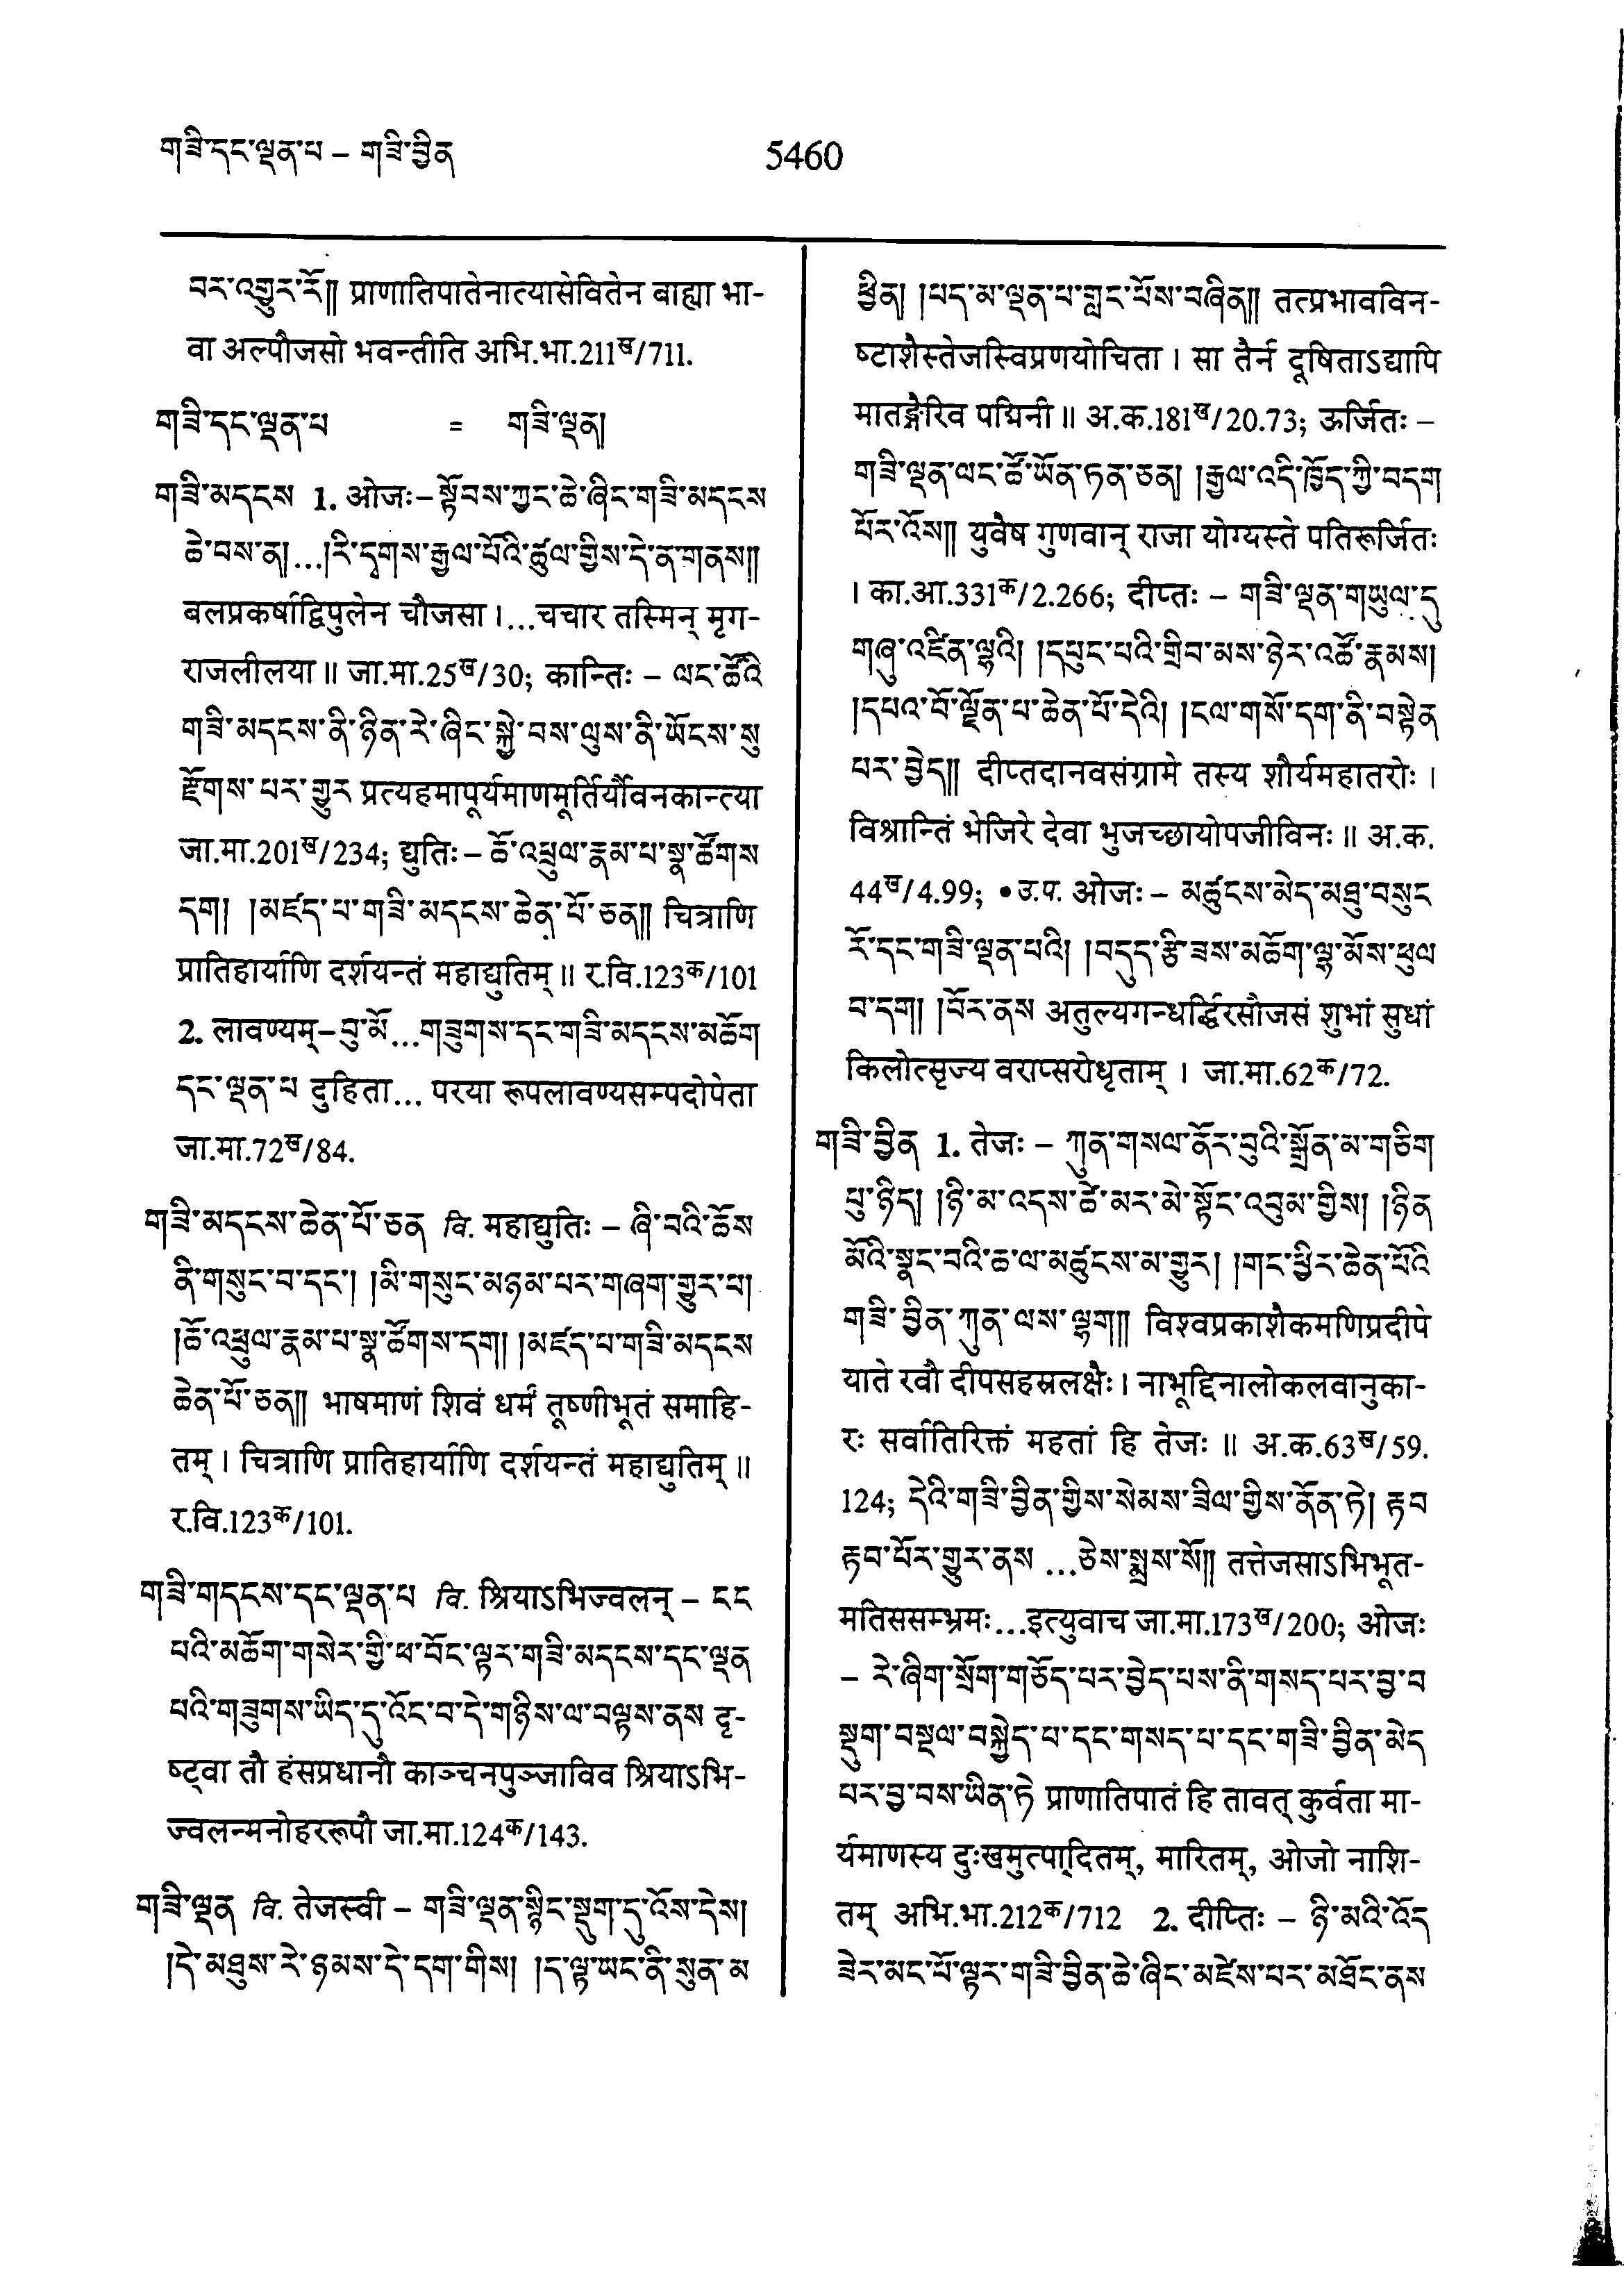 གཟི་དང་ལྡན་པ – གཟི་བྱིན
5460
བར་འགྱུར་རོ།། प्राणातिपातेनात्यासेवितेन बाह्या भा-
वा अल्पौजसो भवन्तीति अभि.भा.211ख/711.
གཟི་དང་ལྡན་པ = གཟི་ལྡན།
གཟི་མདངས 1. ओजः– སྟོབས་ཀྱང་ཆེ་ཞིང་གཟི་མདངས
ཆེ་བས་ན།...།རི་དྭགས་རྒྱལ་པོའི་ཚུལ་གྱིས་དེ་ན་གནས།།
बलप्रकर्षाद्विपुलेन चौजसा ।...चचार तस्मिन् मृग-
राजलीलया ॥ जा.मा.25ख/30; कान्तिः – ལང་ཚོའི
གཟི་མདངས་ནི་ཉིན་རེ་ཞིང་སྐྱེ་བས་ལུས་ནི་ཡོངས་སུ
རྫོགས་པར་གྱུར प्रत्यहमापूर्यमाणमूर्तिर्यौवनकान्त्या
जा.मा.201ख/234; द्युतिः – ཆོ་འཕྲུལ་རྣམ་པ་སྣ་ཚོགས
དག། །མཛད་པ་གཟི་མདངས་ཆེན་པོ་ཅན།། चित्राणि
प्रातिहार्याणि दर्शयन्तं महाद्युतिम् ॥ र.वि.123क/101
2. लावण्यम्– བུ་མོ...གཟུགས་དང་གཟི་མདངས་མཆོག
དང་ལྡན་པ दुहिता... परया रूपलावण्यसम्पदोपेता
जा.मा.72ख/84.
གཟི་མདངས་ཆེན་པོ་ཅན वि. महाद्युतिः – ཞི་བའི་ཆོས
ནི་གསུང་བ་དང་། །མི་གསུང་མཉམ་པར་གཞག་གྱུར་པ།
།ཆོ་འཕྲུལ་རྣམ་པ་སྣ་ཚོགས་དག། །མཛད་པ་གཟི་མདངས
ཆེན་པོ་ཅན།། भाषमाणं शिवं धर्मं तूष्णीभूतं समाहि-
तम् । चित्राणि प्रातिहार्याणि दर्शयन्तं महाद्युतिम् ॥
र.वि.123क/101.
གཟི་གདངས་དང་ལྡན་པ वि. श्रियाऽभिज्वलन् – ངང
པའི་མཆོག་གསེར་གྱི་ཕ་བོང་ལྟར་གཟི་མདངས་དང་ལྡན
པའི་གཟུགས་ཡིད་དུ་འོང་བ་དེ་གཉིས་ལ་བལྟས་ནས दृ-
ष्ट्वा तौ हंसप्रधानौ काञ्चनपुञ्जाविव श्रियाऽभि-
ज्वलन्मनोहररूपौ जा.मा.124क/143.
གཟི་ལྡན वि. तेजस्वी – གཟི་ལྡན་སྙིང་སྡུག་དུ་འོས་དེས།
།དེ་མཐུས་རེ་ཉམས་དེ་དག་གིས། །ད་ལྟ་ཡང་ནི་སུན་མ
ཕྱིན། །པད་མ་ལྡན་པ་གླང་པོས་བཞིན།། तत्प्रभावविन-
ष्टाशैस्तेजस्विप्रणयोचिता । सा तैर्न दूषिताऽद्यापि
मातङ्गैरिव पद्मिनी ॥ अ.क.181ख/20.73; ऊर्जितः –
གཟི་ལྡན་ལང་ཚོ་ཡོན་ཏན་ཅན། །རྒྱལ་འདི་ཁྱོད་ཀྱི་བདག
པོར་འོས།། युवैष गुणवान् राजा योग्यस्ते पतिरूर्जितः
। का.आ.331क/2.266; दीप्तः – གཟི་ལྡན་གཡུལ་དུ
གཞུ་འཛིན་ལྷའི། །དཔུང་པའི་གྲིབ་མས་ཉེར་འཚོ་རྣམས།
།དཔའ་བོ་ལྗོན་པ་ཆེན་པོ་དེའི། །ངལ་གསོ་དག་ནི་བསྟེན
པར་བྱེད།། दीप्तदानवसंग्रामे तस्य शौर्यमहातरोः ।
विश्रान्तिं भेजिरे देवा भुजच्छायोपजीविनः ॥ अ.क.
44ख/4.99; • उ.प. ओजः – མཚུངས་མེད་མཐུ་བསུང
རོ་དང་གཟི་ལྡན་པའི། །བདུད་རྩི་ཟས་མཆོག་ལྷ་མོས་ཕུལ
བ་དག། །བོར་ནས अतुल्यगन्धर्द्धिरसौजसं शुभां सुधां
किलोत्सृज्य वराप्सरोधृताम् । जा.मा.62क/72.
གཟི་བྱིན 1. तेजः – ཀུན་གསལ་ནོར་བུའི་སྒྲོན་མ་གཅིག
པུ་ཉིད། །ཉི་མ་འདས་ཚེ་མར་མེ་སྟོང་འབུམ་གྱིས། །ཉིན
མོའི་སྣང་བའི་ཆ་ལ་མཚུངས་མ་གྱུར། །གང་ཕྱིར་ཆེན་པོའི
གཟི་བྱིན་ཀུན་ལས་ལྷག།། विश्वप्रकाशैकमणिप्रदीपे
याते रवौ दीपसहस्रलक्षैः । नाभूद्दिनालोकलवानुका-
रः सर्वातिरिक्तं महतां हि तेजः ॥ अ.क.63ख/59.
124; དེའི་གཟི་བྱིན་གྱིས་སེམས་ཟིལ་གྱིས་ནོན་ཏེ། རྟབ
རྟབ་པོར་གྱུར་ནས ...ཅེས་སྨྲས་སོ།། तत्तेजसाऽभिभूत-
मतिससम्भ्रमः...इत्युवाच जा.मा.173ख/200; ओजः
– རེ་ཞིག་སྲོག་གཅོད་པར་བྱེད་པས་ནི་གསད་པར་བྱ་བ
སྡུག་བསྔལ་བསྐྱེད་པ་དང་གསད་པ་དང་གཟི་བྱིན་མེད
པར་བྱ་བས་ཡིན་ཏེ प्राणातिपातं हि तावत् कुर्वता मा-
र्यमाणस्य दुःखमुत्पादितम्, मारितम्, ओजो नाशि-
तम् अभि.भा.212क/712 2. दीप्तिः – ཉི་མའི་འོད
ཟེར་མང་པོ་ལྟར་གཟི་བྱིན་ཆེ་ཞིང་མཛེས་པར་མཐོང་ནས